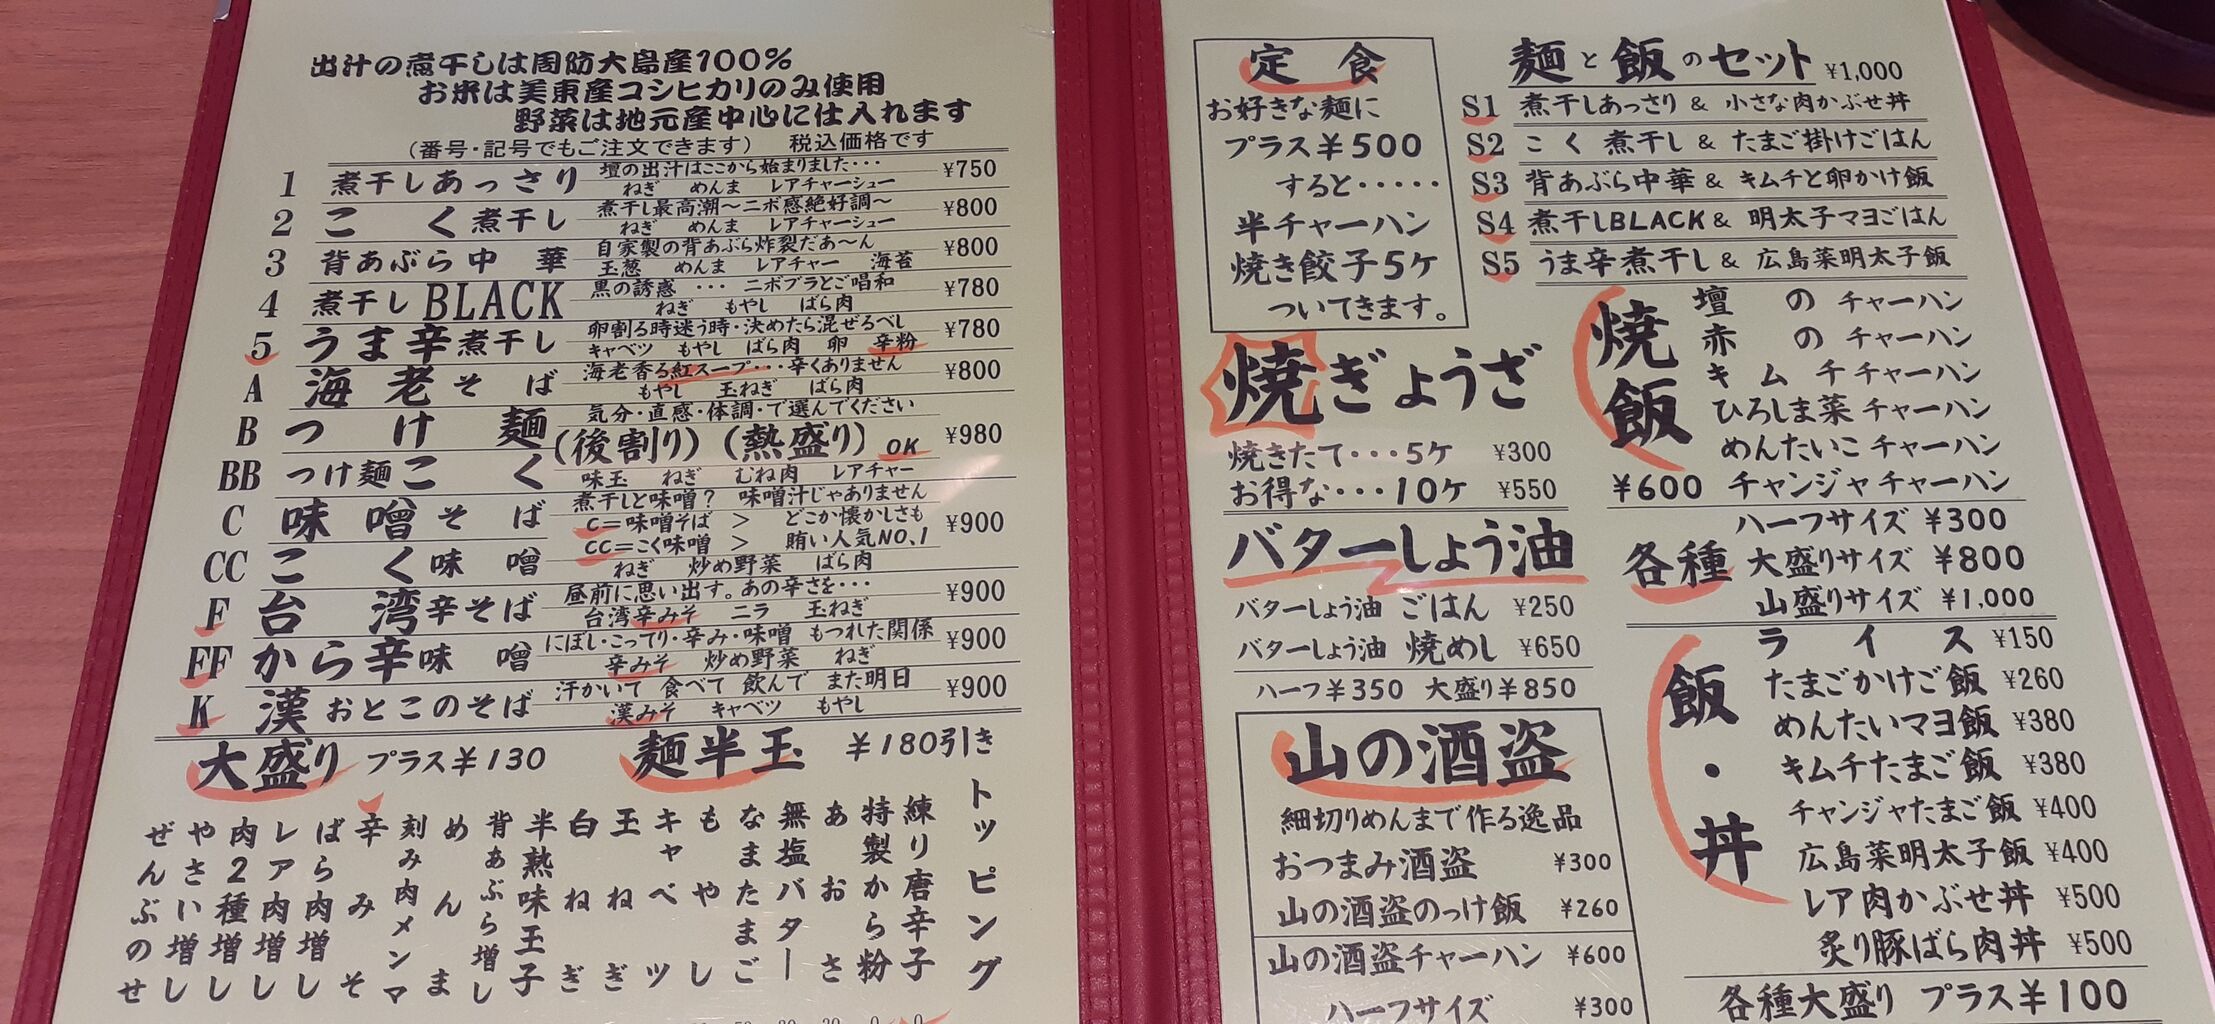 出汁の煮干しは周防大島産100%
お米は美東産コシヒカリのみ使用
野菜は地元産中心に仕入れます
(番号・記号でもご注文できます) 税込価格です
1 煮干しあっさり 壇の出汁はここから始まりました・・・ ¥750
ねぎ めんま レアチャーシュー
2 こく煮干し 煮干し最高潮~ニボ感絶好調~ ¥800
ねぎ めんま レアチャーシュー
3 背あぶら中華 自家製の背あぶら炸裂だあ~ん ¥800
玉葱 めんま レアチャー 海苔
4 煮干しBLACK 黒の誘惑 ・・・ ニボブラとご唱和 ¥780
ねぎ もやし ばら肉
5 うま辛煮干し 卵割る時迷う時・決めたら混ぜるべし ¥780
キャベツ もやし ばら肉 卵 辛粉
A 海老そば 海老香る紅スープ・・・辛くありません ¥800
もやし 玉ねぎ ばら肉
B つけ麺 気分・直感・体調・で選んでください
(後割り)(熱盛り)OK ¥980
BB つけ麺こく 味玉 ねぎ むね肉 レアチャー
C 味噌そば 煮干しと味噌? 味噌汁じゃありません
C=味噌そば > どこか懐かしさも ¥900
CC=こく味噌 > 賄い人気NO.1
CC こく味噌 ねぎ 炒め野菜 ばら肉
F 台湾辛そば 昼前に思い出す。あの辛さを・・・ ¥900
台湾辛みそ ニラ 玉ねぎ
FF から辛味噌 にぼし・こってり・辛み・味噌 もつれた関係 ¥900
辛みそ 炒め野菜 ねぎ
K 漢おとこのそば 汗かいて 食べて 飲んで また明日 ¥900
漢みそ キャベツ もやし
大盛り プラス¥130 麺半玉 ¥180引き
トッピング
練り唐辛子
特製から粉
あおさ
無塩バター
なまたまご
もやし
キャベツ
玉ねぎ
白ねぎ
半熟味玉子
背あぶら増し
めんま
刻み肉メンマ
辛みそ
ばら肉増し
レア肉増し
肉2種増し
やさい増し
ぜんぶのせ
定食
お好きな麺に
プラス¥500
すると・・・・・
半チャーハン
焼き餃子5ケ
ついてきます。
焼ぎょうざ
焼きたて・・・5ケ ¥300
お得な・・・10ケ ¥550
バターしょう油
バターしょう油 ごはん ¥250
バターしょう油 焼めし ¥650
ハーフ¥350 大盛り¥850
山の酒盗
細切りめんまで作る逸品
おつまみ酒盗 ¥300
山の酒盗のっけ飯 ¥260
山の酒盗チャーハン ¥600
ハーフサイズ ¥300
麺と飯のセット ¥1,000
S1 煮干しあっさり & 小さな肉かぶせ丼
S2 こく 煮干し & たまご掛けごはん
S3 背あぶら中華 & キムチと卵かけ飯
S4 煮干しBLACK & 明太子マヨごはん
S5 うま辛煮干し & 広島菜明太子飯
焼飯
壇のチャーハン
赤のチャーハン
キムチチャーハン
ひろしま菜チャーハン
めんたいこチャーハン
¥600 チャンジャチャーハン
各種
ハーフサイズ ¥300
大盛りサイズ ¥800
山盛りサイズ ¥1,000
飯・丼
ライス ¥150
たまごかけご飯 ¥260
めんたいマヨ飯 ¥380
キムチたまご飯 ¥380
チャンジャたまご飯 ¥400
広島菜明太子飯 ¥400
レア肉かぶせ丼 ¥500
炙り豚ばら肉丼 ¥500
各種大盛り プラス¥100